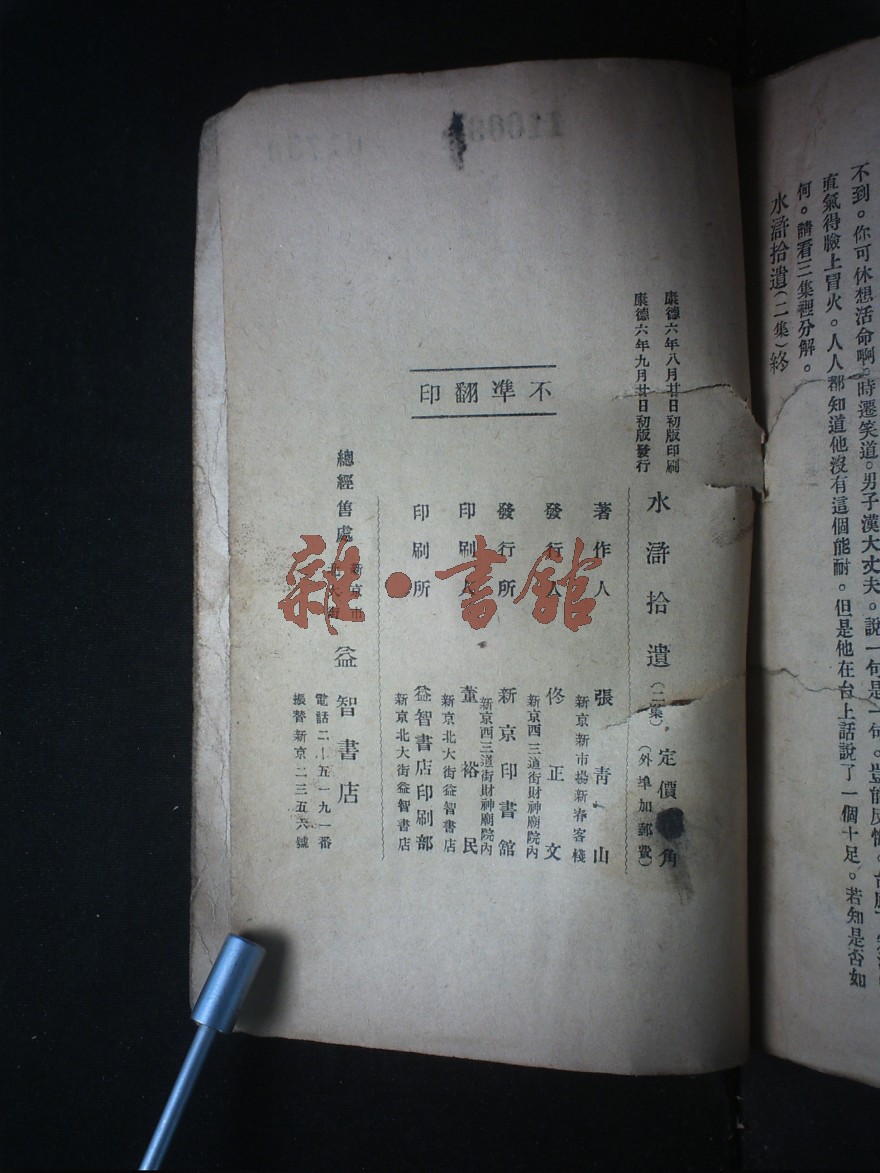 不到。你可休想活命啊。時遷笑道。男子漢大丈夫。說一句是一句。豈能反悔。台底
直氣得臉上冒火。人人都知道他沒有這個能耐。但是他在台上話說了一個十足。若知是否如
何。請看三集裡分解。
水滸拾遺(二集)終
康德六年八月廿日初版印刷
康德六年九月廿日初版發行
水滸拾遺(二集)
定價 角
(外埠加郵費)
不準翻印
著作人 張青山
新京新市場新春客棧
發行人 佟正文
新京西三道街財神廟院內
發行所 新京印書館
新京西三道街財神廟院內
印刷人 董裕民
新京北大街益智書店
印刷所 益智書店印刷部
新京北大街益智書店
總經售處 新京市北大街 益智書店
電話二-五一九一番
振替新京二三五六號
雜·書館